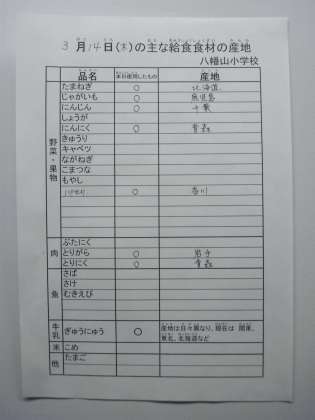 3月14日(木)の主な給食食材の産地
八幡山小学校
品名 本日使用したもの 産地
野菜・果物
たまねぎ ○ 北海道
じゃがいも ○ 鹿児島
にんじん ○ 千葉
しょうが
にんにく ○ 青森
きゅうり
キャベツ
ながねぎ
こまつな
もやし
パセリ ○ 香川
肉
ぶたにく
とりがら ○ 岩手
とりにく ○ 青森
魚
さば
さけ
むきえび
牛乳 ぎゅうにゅう ○ 産地は日々異なり、現在は 関東、
東北、北海道など
米 こめ
他 たまご